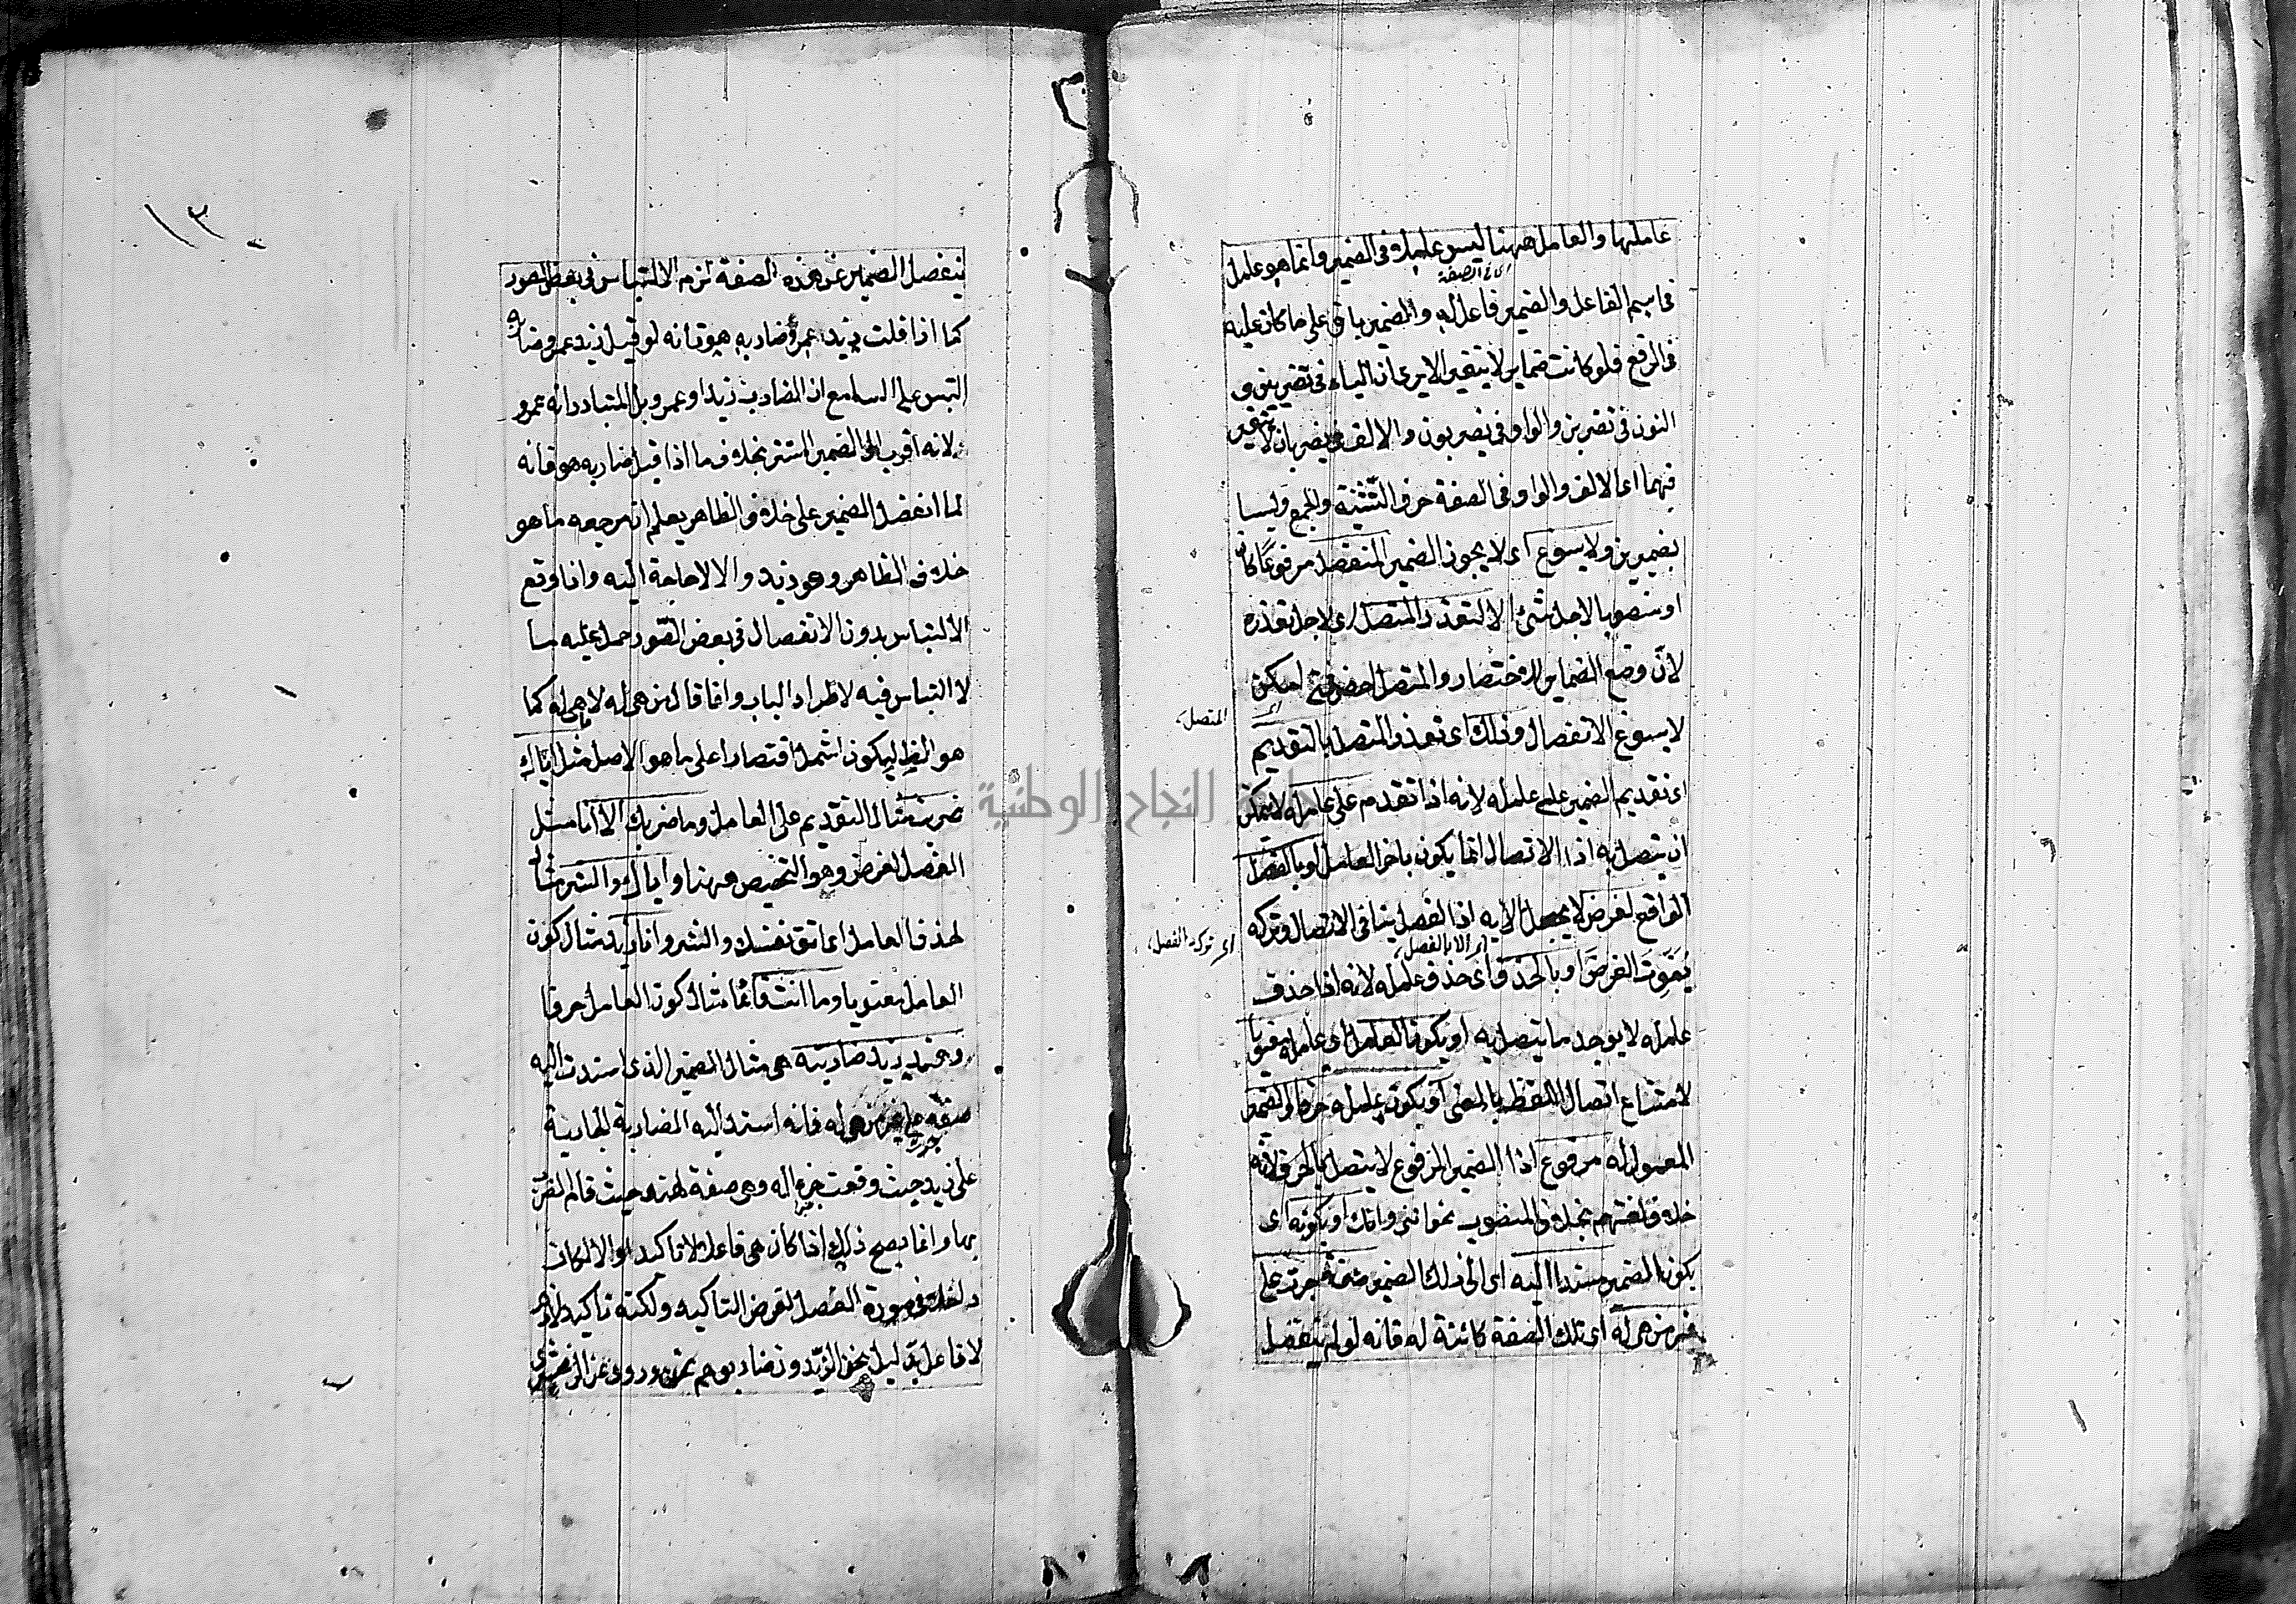 عاملها والعامل ههنا ليس عاملا في الضمير وانما هو عامل
اى في الصفة
في اسم الفاعل والضمير فاعل له والضمير باق على ما كان عليه
في الرفع فلو كانت ضماير لا يتغير الا يرى ان الياء في تضربين و
النون في تضربن والواو في تضربون والالف في يضربان لا يتغير
فهما اى الالف والواو في الصفة حرفا التثنية والجمع وليسا
بضميرين ولا يسوغ اى لا يجوز الضمير المنفصل مرفوعا كان
او منصوبا لاجل شئ الا لتعذر المتصل اى لاجل تعذره
لان وضع الضماير للاختصار والمتصل اخصر فمتى امكن
اى المتصل
لا يسوغ الانفصال وذلك اى تعذر المتصل بالتقديم
اى تقديم الضمير على عامله لانه اذا تقدم على عامله لا يمكن
ان يتصل به اذ الاتصال انما يكون باخر العامل او بالفصل
الواقع لغرض لا يحصل الا به اذ الفصل ينافى الاتصال وتركه
اى ترك الفصل
اى الا بالفصل
يفوت الغرض او بالحذف اى حذف عامله لانه اذا حذف
عامله لا يوجد ما يتصل به او يكون العامل اى عامله معنويا
لامتناع اتصال اللفظ بالمعنى او يكون عامله حرفا والضمير
المعمول له مرفوع اذ الضمير المرفوع لا يتصل بالحرف لانه
خلاف لغتهم بخلاف المنصوب نحو اننى وانك او بكونه اى
بكون الضمير مسندا اليه اى الى ذلك الضمير صفة جرت على
غير من هى له اى تلك الصفة كائنة له فانه لو لم ينفصل
١٣
ينفصل الضمير عن هذه الصفة لزم الالتباس في بعض الصور
كما اذا قلت زيد عمرو ضاربه هو فانه لو قيل زيد عمرو ضاربه
التبس على السامع ان الضارب زيد او عمرو بل المتبادر انه عمرو
لانه اقرب الى الضمير المستتر بخلاف ما اذا قيل ضاربه هو فانه
لما انفصل الضمير على خلاف الظاهر يعلم ان مرجعه ما هو
خلاف الظاهر وهو زيد والا لا حاجة اليه واذا وقع
الالتباس بدون الانفصال في بعض الصور حمل عليه ما
لا التباس فيه لاطراد الباب وانما قال من هى له لا ما هى له كما
هو الظ ليكون اشمل اقتصارا على ما هو الاصل مثل اياك
ضربت مثال التقديم على العامل وما ضربك الا انا مثل
الفصل لغرض وهو التخصيص ههنا واياك والشر مثال
لحذف العامل اى اتق نفسك والشر وانا زيد مثال كون
العامل معنويا وما انت قائما مثال كون العامل حرفا
وهند زيد ضاربته هى مثال الضمير الذى اسندت اليه
صفة جرت على غير من هى له فانه اسند اليه الضاربة الجارية
على زيد حيث وقعت خبرا له وهى صفة لهند حيث قام الضرب
بها وانما يصح ذلك اذا كان هى فاعلا لا تاكيدا والا لكان
داخلا في صورة الفصل لغرض التاكيد ولكنه تاكيد لازم
لا فاعل بدليل نحن الزيدون ضاربوهم نحن وروى عن الزمخشرى